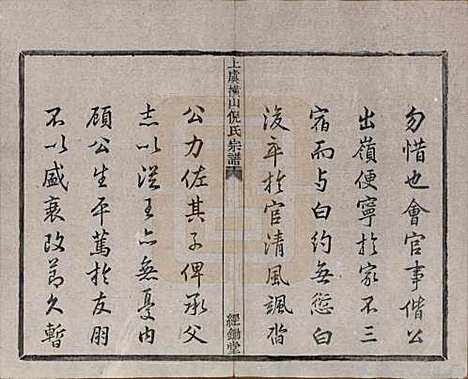 勿惜也會官事偕公
出嶺便寧於家不三
宿而与白約無愆白
後卒於官清風颯沓
上虞橫山倪氏宗譜
經鋤堂
公力佐其子俾承父
志以從王亦無憂内
顧公生平篤於友朋
不以盛衰改節久暫